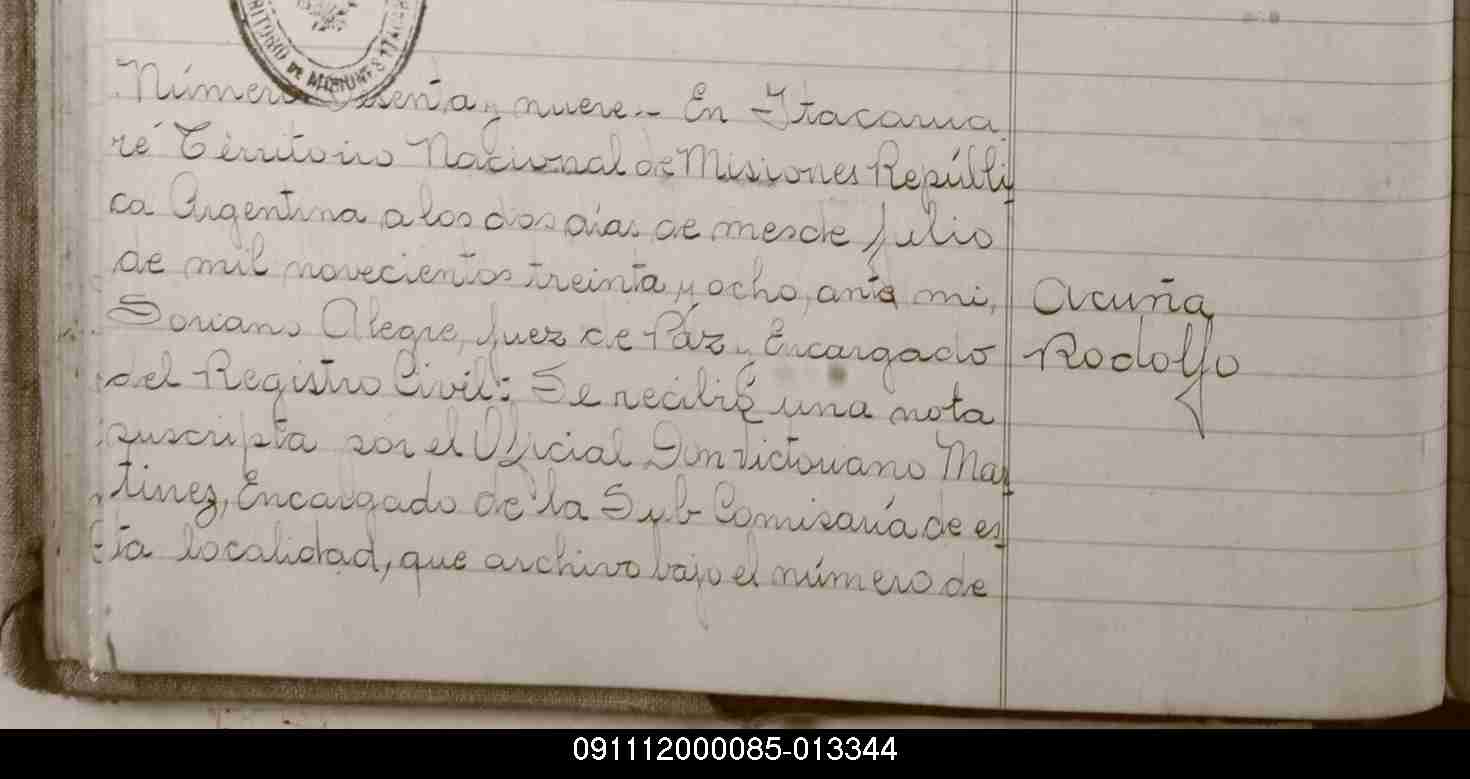 RITORIO DE MISIONES ITACAR
Número senta y nueve.- En Itacarua
ré Territorio Nacional de Misiones Repúbli
ca Argentina a los dos días de mes de Julio
de mil novecientos treinta y ocho, ante mi,
Soriano Alegre, Juez de Páz y Encargado
del Registro Civil: Se recibió una nota
suscripta por el Oficial Don Victoriano Mar
tinez, Encargado de la Sub Comisaría de es
ta localidad, que archivo bajo el número de
Acuña
Rodolfo
091112000085-013344